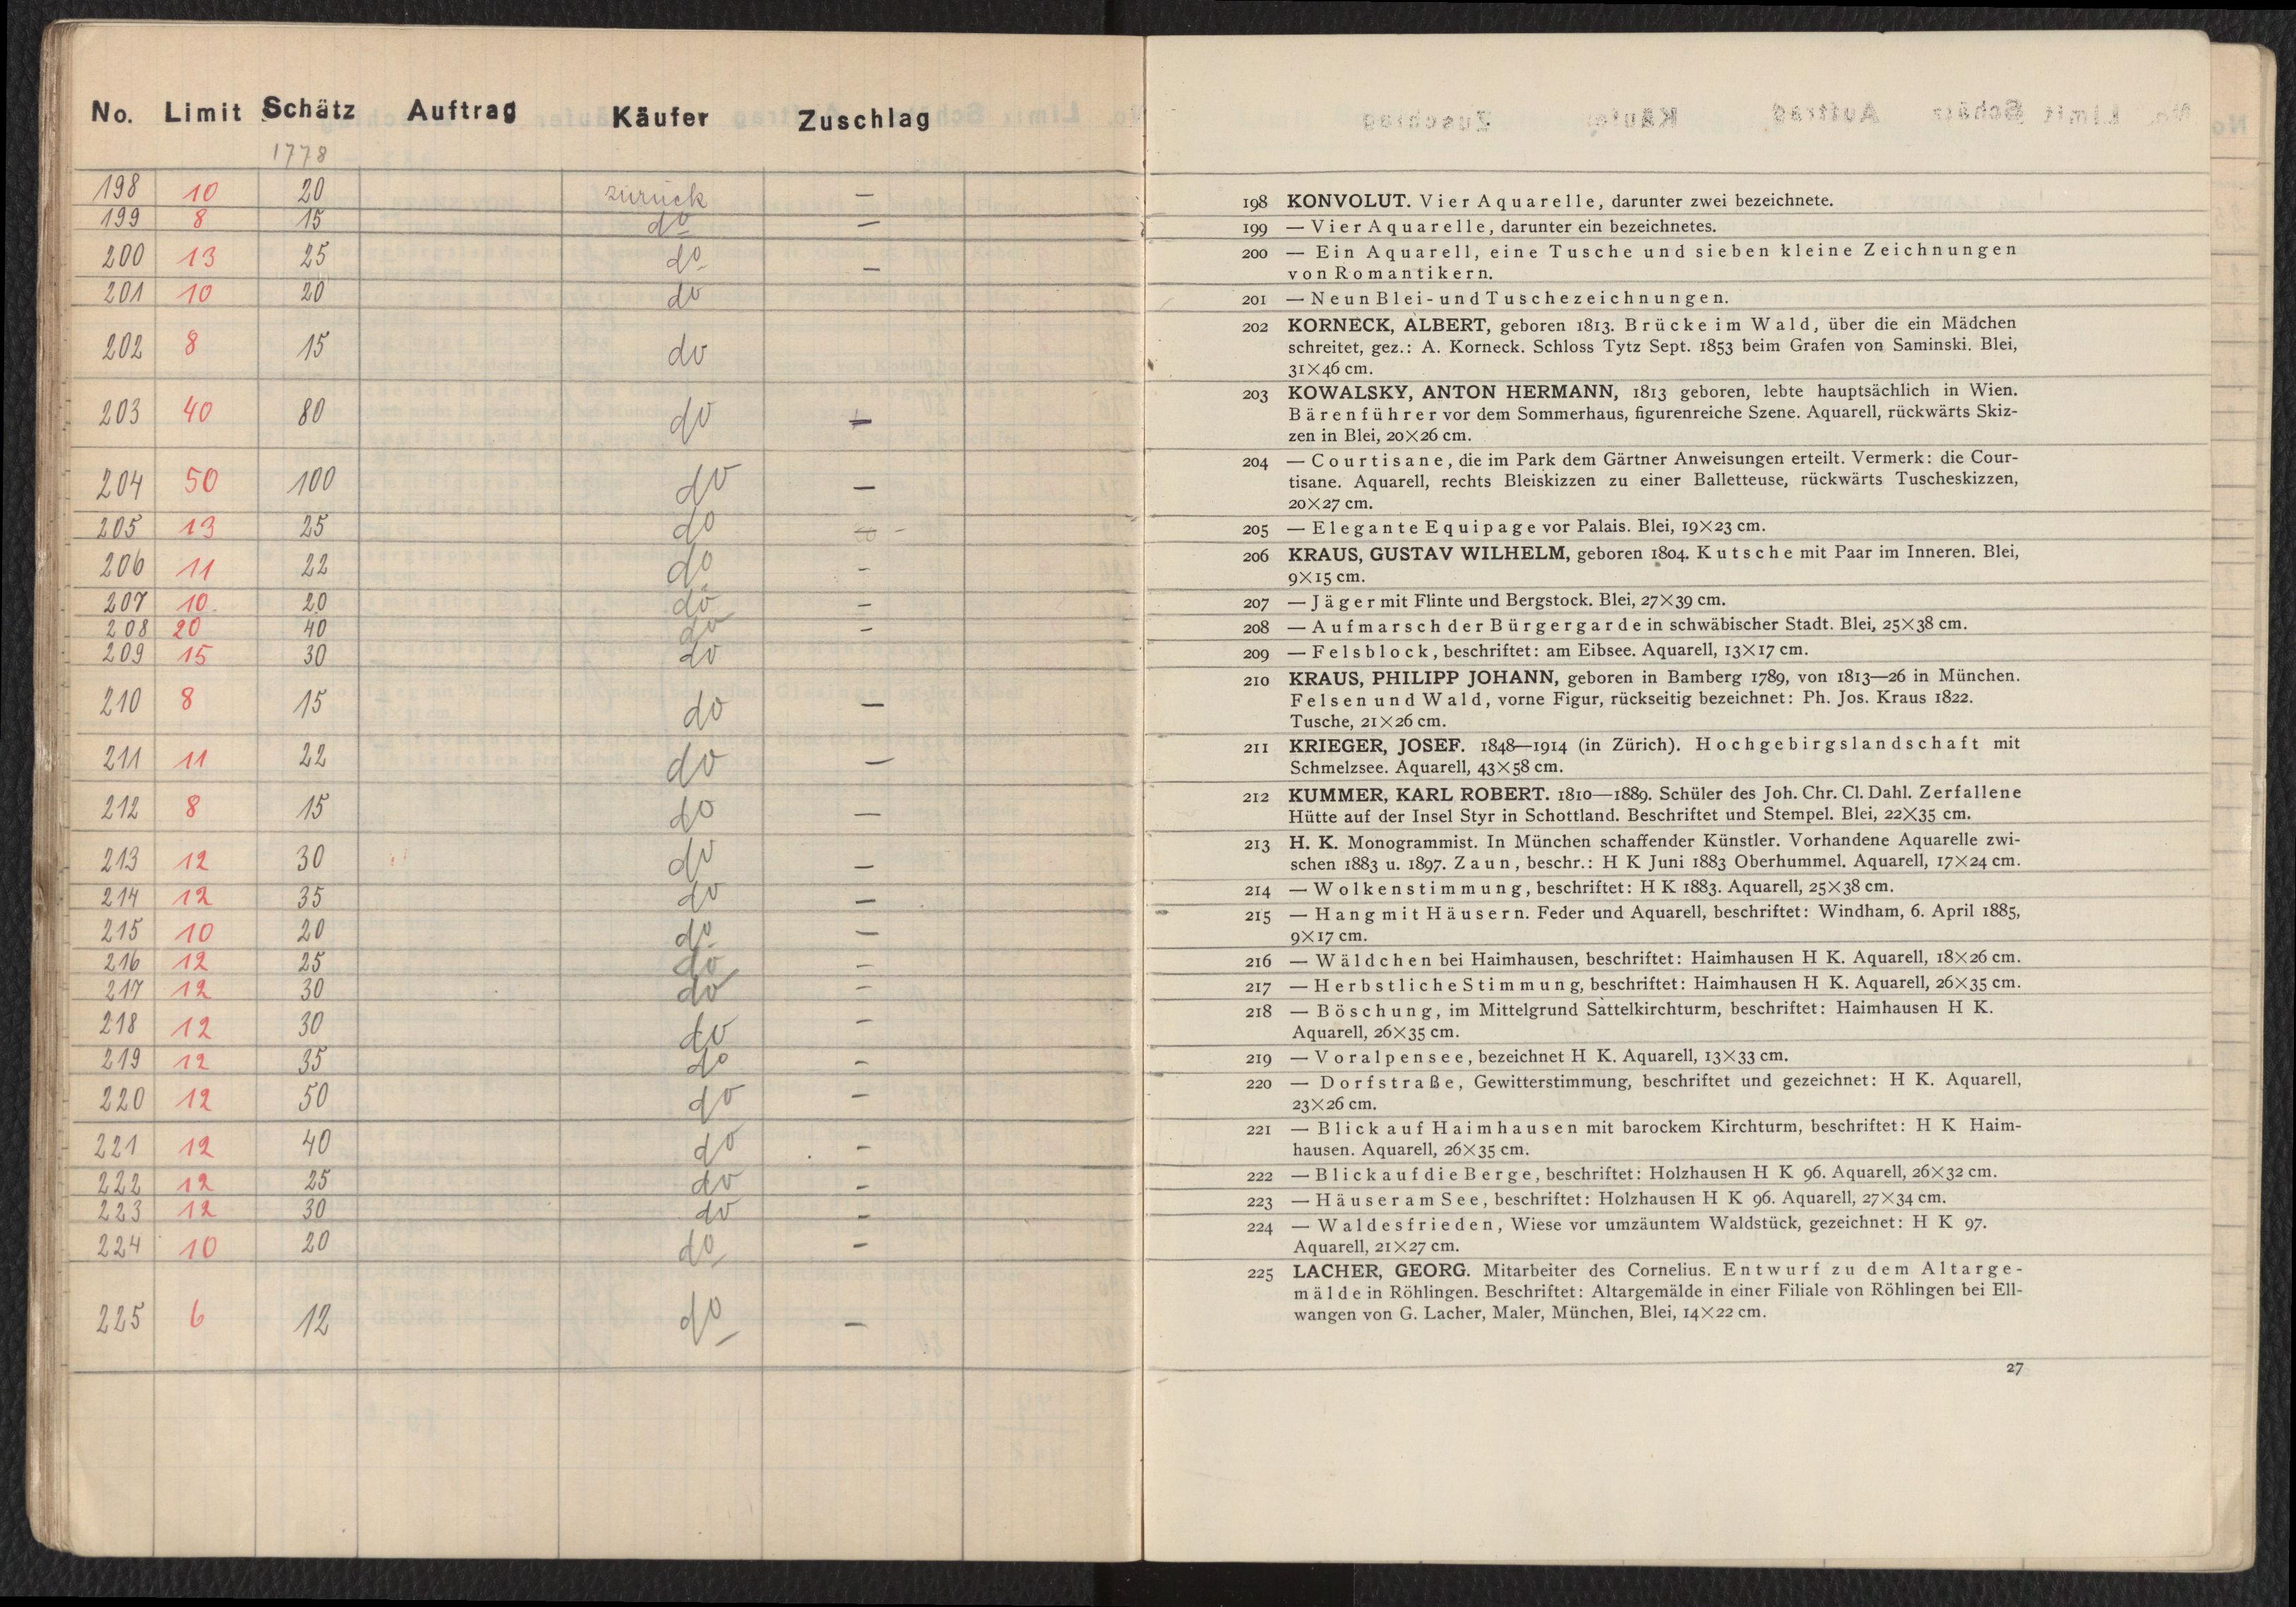 No. Limit Schätz Auftrag Käufer Zuschlag
1778
198 10 20 zurück —
199 8 15 do —
200 13 25 do —
201 10 20 do
202 8 15 do
203 40 80 do —
204 50 100 do —
205 13 25 do —
206 11 22 do -
207 10 20 do —
208 20 40 do —
209 15 30 do
210 8 15 do —
211 11 22 do —
212 8 15 do —
213 12 30 do —
214 12 35 do —
215 10 20 do —
216 12 25 do —
217 12 30 do —
218 12 30 do —
219 12 35 do —
220 12 50 do —
221 12 40 do —
222 12 25 do —
223 12 30 do —
224 10 20 do —
225 6 12 do —
198 KONVOLUT. Vier Aquarelle, darunter zwei bezeichnete.
199 — Vier Aquarelle, darunter ein bezeichnetes.
200 — Ein Aquarell, eine Tusche und sieben kleine Zeichnungen
von Romantikern.
201 — Neun Blei- und Tuschezeichnungen.
202 KORNECK, ALBERT, geboren 1813. Brücke im Wald, über die ein Mädchen
schreitet, gez.: A. Korneck. Schloss Tytz Sept. 1853 beim Grafen von Saminski. Blei,
31×46 cm.
203 KOWALSKY, ANTON HERMANN, 1813 geboren, lebte hauptsächlich in Wien.
Bärenführer vor dem Sommerhaus, figurenreiche Szene. Aquarell, rückwärts Skiz-
zen in Blei, 20×26 cm.
204 — Courtisane, die im Park dem Gärtner Anweisungen erteilt. Vermerk: die Cour-
tisane. Aquarell, rechts Bleiskizzen zu einer Balletteuse, rückwärts Tuscheskizzen,
20×27 cm.
205 — Elegante Equipage vor Palais. Blei, 19×23 cm.
206 KRAUS, GUSTAV WILHELM, geboren 1804. Kutsche mit Paar im Inneren. Blei,
9×15 cm.
207 — Jäger mit Flinte und Bergstock. Blei, 27×39 cm.
208 — Aufmarsch der Bürgergarde in schwäbischer Stadt. Blei, 25×38 cm.
209 — Felsblock, beschriftet: am Eibsee. Aquarell, 13×17 cm.
210 KRAUS, PHILIPP JOHANN, geboren in Bamberg 1789, von 1813—26 in München.
Felsen und Wald, vorne Figur, rückseitig bezeichnet: Ph. Jos. Kraus 1822.
Tusche, 21×26 cm.
211 KRIEGER, JOSEF. 1848—1914 (in Zürich). Hochgebirgslandschaft mit
Schmelzsee. Aquarell, 43×58 cm.
212 KUMMER, KARL ROBERT. 1810—1889. Schüler des Joh. Chr. Cl. Dahl. Zerfallene
Hütte auf der Insel Styr in Schottland. Beschriftet und Stempel. Blei, 22×35 cm.
213 H. K. Monogrammist. In München schaffender Künstler. Vorhandene Aquarelle zwi-
schen 1883 u. 1897. Zaun, beschr.: H K Juni 1883 Oberhummel. Aquarell, 17×24 cm.
214 — Wolkenstimmung, beschriftet: H K 1883. Aquarell, 25×38 cm.
215 — Hang mit Häusern. Feder und Aquarell, beschriftet: Windham, 6. April 1885,
9×17 cm.
216 — Wäldchen bei Haimhausen, beschriftet: Haimhausen H K. Aquarell, 18×26 cm.
217 — Herbstliche Stimmung, beschriftet: Haimhausen H K. Aquarell, 26×35 cm.
218 — Böschung, im Mittelgrund Sattelkirchturm, beschriftet: Haimhausen H K.
Aquarell, 26×35 cm.
219 — Voralpensee, bezeichnet H K. Aquarell, 13×33 cm.
220 — Dorfstraße, Gewitterstimmung, beschriftet und gezeichnet: H K. Aquarell,
23×26 cm.
221 — Blick auf Haimhausen mit barockem Kirchturm, beschriftet: H K Haim-
hausen. Aquarell, 26×35 cm.
222 — Blick auf die Berge, beschriftet: Holzhausen H K 96. Aquarell, 26×32 cm.
223 — Häuser am See, beschriftet: Holzhausen H K 96. Aquarell, 27×34 cm.
224 — Waldesfrieden, Wiese vor umzäuntem Waldstück, gezeichnet: H K 97.
Aquarell, 21×27 cm.
225 LACHER, GEORG. Mitarbeiter des Cornelius. Entwurf zu dem Altarge-
mälde in Röhlingen. Beschriftet: Altargemälde in einer Filiale von Röhlingen bei Ell-
wangen von G. Lacher, Maler, München, Blei, 14×22 cm.
27